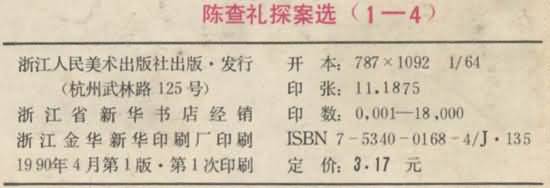 陈查礼探案选（1—4）
浙江人民美术出版社出版·发行
（杭州武林路125号）
浙江省新华书店经销
浙江金华新华印刷厂印刷
1990年4月第1版·第1次印刷
开 本：787×1092 1/64
印 张：11.1875
印 数：0,001—18,000
ISBN 7-5340-0168-4/J·135
定 价：3.17 元